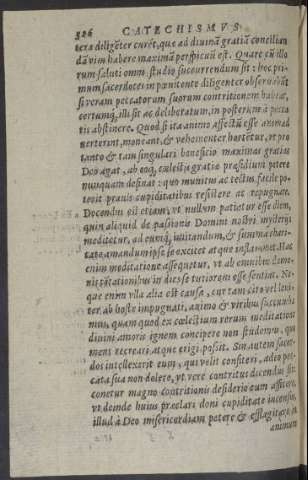 326 CATECHISMVS
tera diligēter curēt, que ad diuinā gratiā concilian
dā vim habere maximā perspicuū est. Quare cū illo
rum saluti omni studio succurrendum sit: hoc pri
mùm sacerdotes in pœnitente diligenter obseruabūt
si veram peccatorum suorum contritionem habeat,
certumq́; illi sit ac deliberatum, in posterum à pecca
tis abstinere. Quod si ita animo affectū esse animad
uerterint, moneant, & vehementer hortētur, vt pro
tanto & tam singulari beneficio maximas gratias
Deo agat, ab eoq́; cælestis gratiæ præsidium petere
nunquam desinat: quo munitus ac tectus facilè po-
terit prauis cupiditatibus resistere ac repugnare.
Docendus est etiam, vt nullum patiatur esse diem,
quin aliquid de passionis Domini nostri mysterijs
meditetur, ad eumq́; imitandum, & summa chari-
tate amandum ipse se excitet atque inflammet. Hac
enim meditatione assequetur, vt ab omnibus dæmo-
nis tētationibus in dies se tutiorem esse sentiat. Ne
que enim vlla alia est causa, cur tam citò vel leui
ter ab hoste impugnati, animo & viribus succumba
mus, quam quod ex cælestium rerum meditatione
diuini amoris ignem concipere non studemus, quo
mens recreari, atque erigi possit. Sin autem sacer-
dos intellexerit eum, qui velit confiteri, adeo pec-
cata sua non dolere, vt verè contritus dicendus sit:
conetur magno contritionis desiderio eum afficere,
vt deinde huius præclari doni cupiditate incensus,
illud à Dei misericordiam petere & efflagitare in
animum